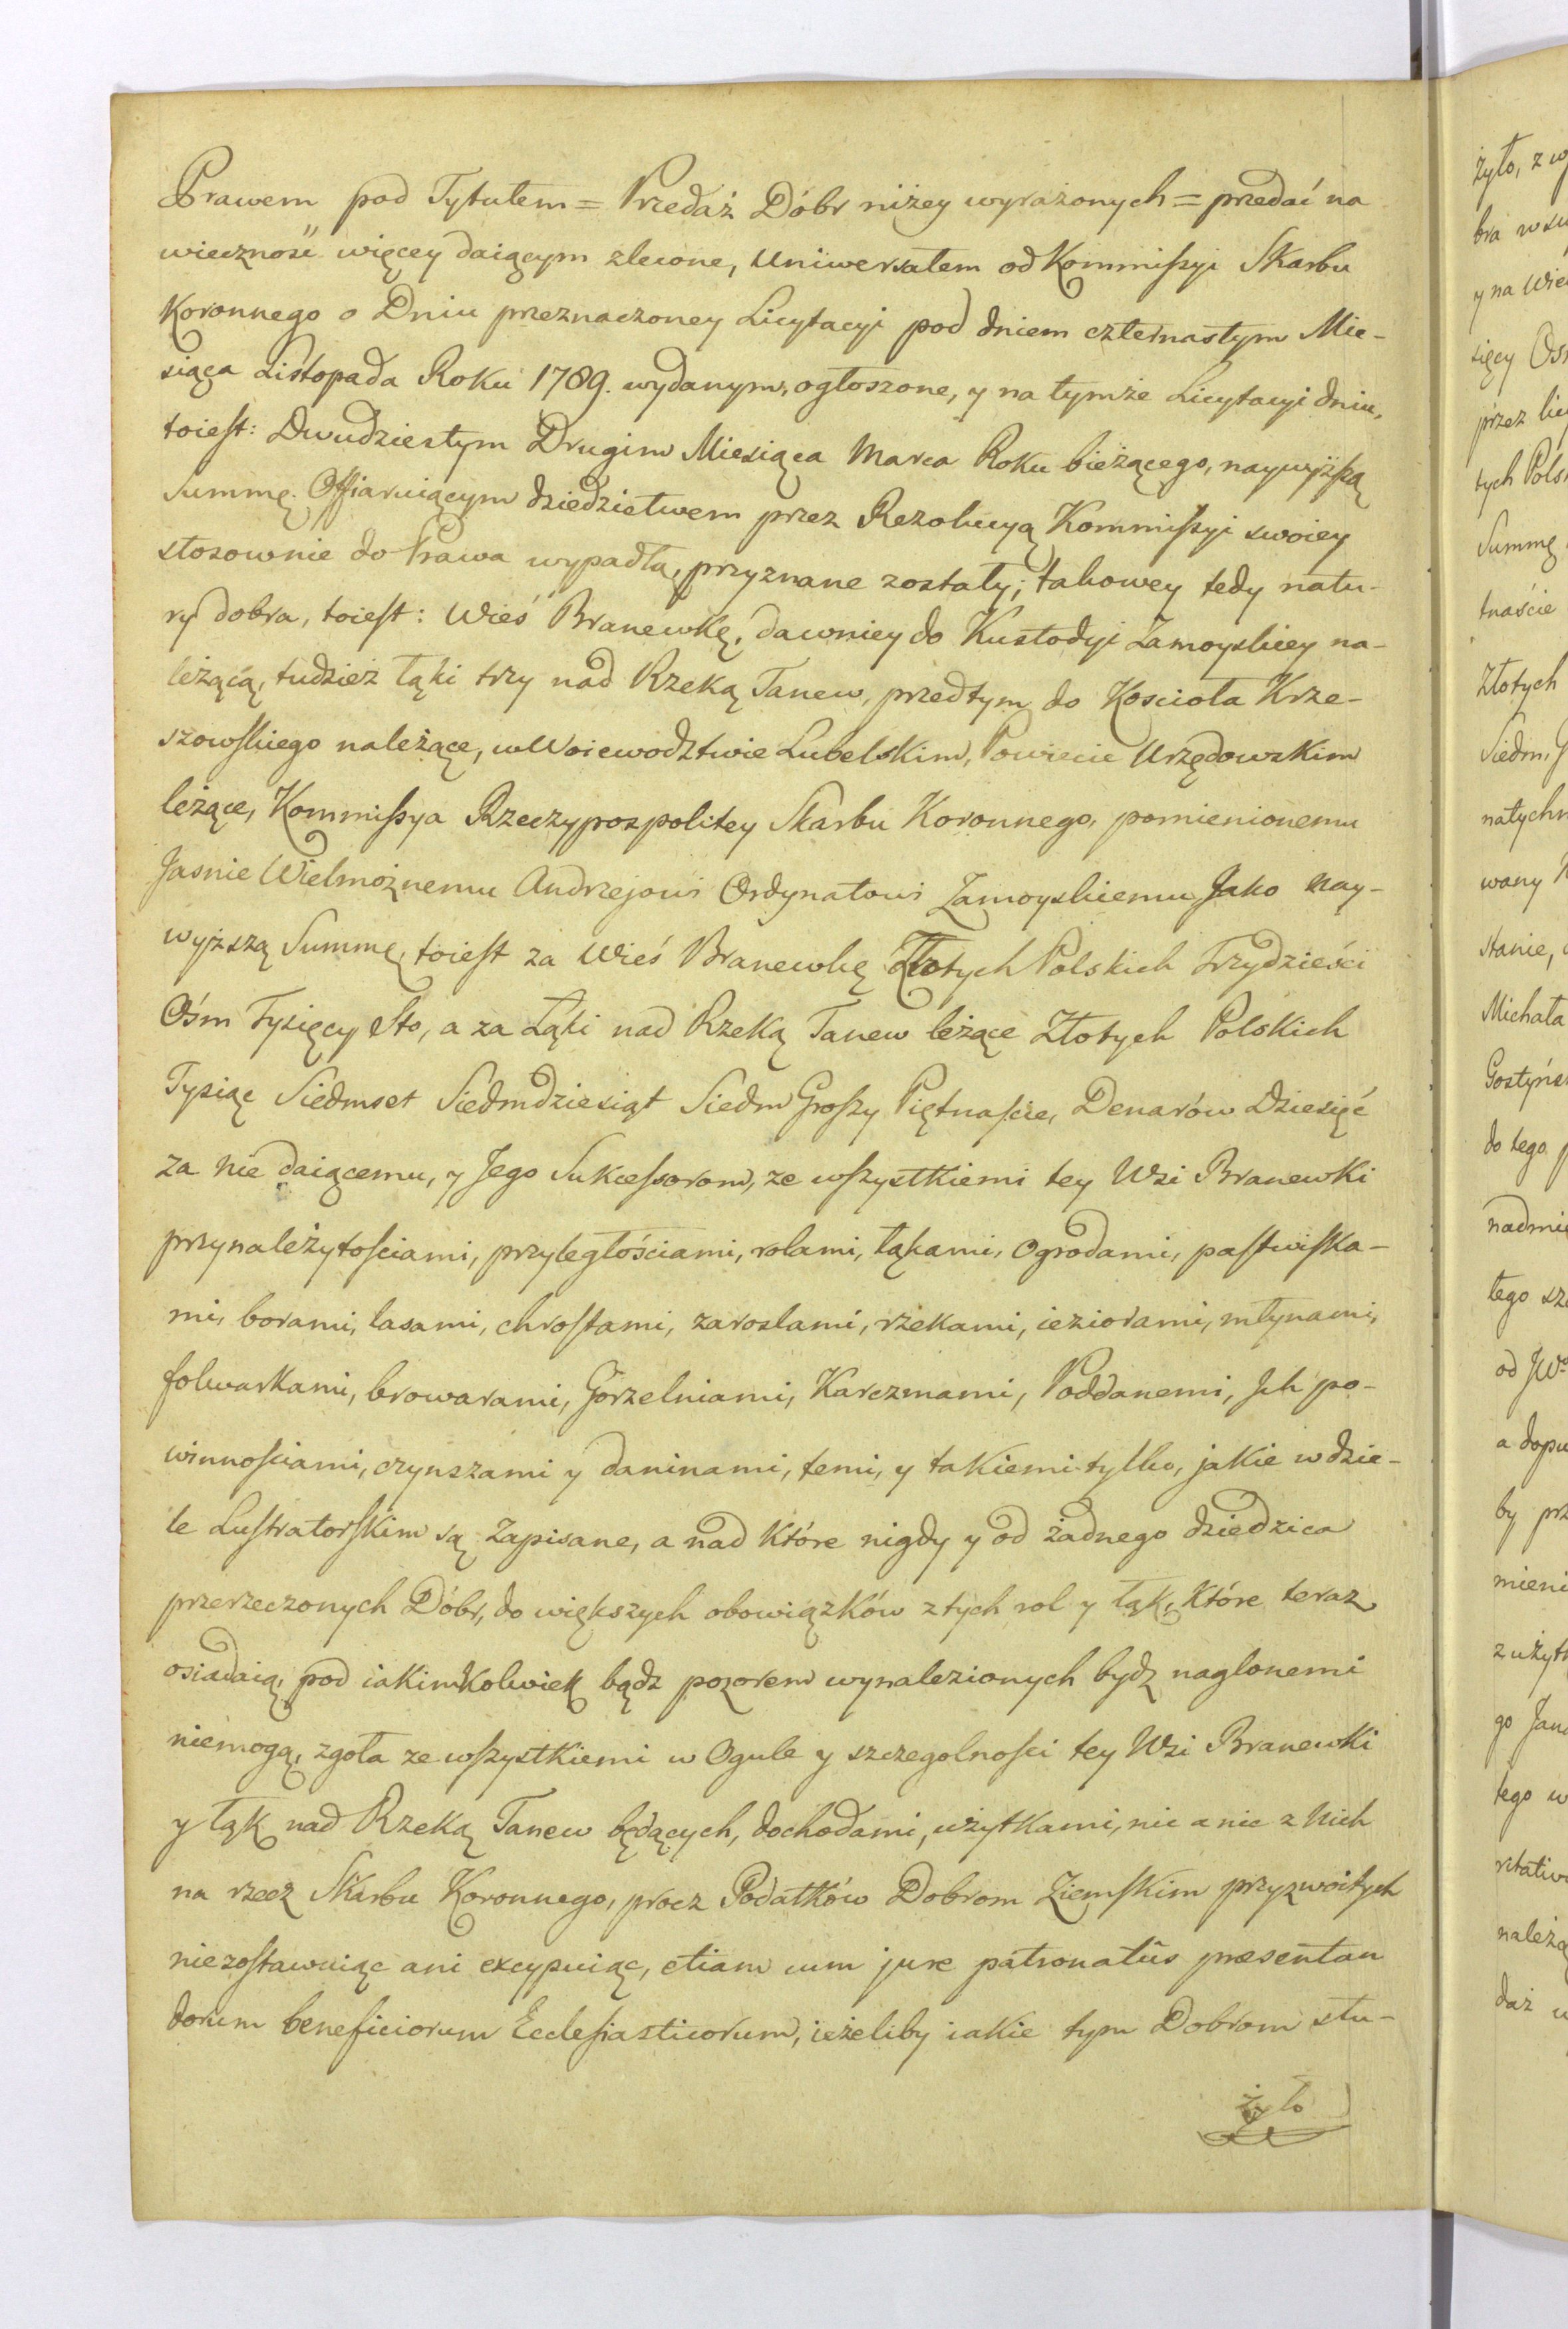 Prawem pod Tytułem = Przedaż Dóbr niżey wyrażonych = przedać na
wieczność więcey daiącym zlecone, Uniwersałem od Kommissyi Skarbu
Koronnego o Dniu przeznaczoney Licytacyi pod dniem czternastym Mie-
siąca Listopada Roku 1789. wydanym, ogłoszone, y na tymże Licytacyi dniu,
toiest: Dwudziestym Drugim Miesiąca Marca Roku bieżącego, naywyższą
Summę Offiaruiącym dziedzictwem przez Rezolucyą Kommissyi swoiey
stosownie do Prawa wypadłą, przyznane zostały; takowey tedy natu-
ry dobra, toiest: Wieś Branewkę, dawniey do Kustodyi Zamoyskiey na-
leżącą, tudzież łąki trzy nad Rzeką Tanew, przedtym do Kościoła Krze-
szowskiego należące, w Woiewodztwie Lubelskim, Powiecie Urzędowskim
leżące, Kommissya Rzeczypospolitey Skarbu Koronnego, pomienionemu
Jasnie Wielmożnemu Andrzejowi Ordynatowi Zamoyskiemu Jako nay-
wyższą Summę, toiest za Wieś Branewkę Złotych Polskich Trzydzieści
Ośm Tysięcy Sto, a za Łąki nad Rzeką Tanew leżące Złotych Polskich
Tysiąc Siedmset Siedmdziesiąt Siedm Groszy Piętnaście, Denarów Dziesięć
za nie daiącemu, y Jego Sukcessorom, ze wszystkiemi tey Wsi Branewki
przynależytościami, przyległościami, rolami, łąkami, ogrodami, pastwiska-
mi, borami, lasami, chrostami, zaroslami, rzekami, ieziorami, młynami,
folwarkami, browarami, Gorzelniami, Karczmami, Poddanemi, Jch po-
winnościami, czynszami y daninami, temi, y takiemi tylko, jakie w dzie-
le Lustratorskim są Zapisane, a nad które nigdy y od żadnego dziedzica
przerzeczonych Dóbr, do większych obowiązków z tych rol y łąk, które teraz
osiadaią, pod iakimkolwiek bądz pozorem wynalezionych bydz naglonemi
niemogą, zgoła ze wszystkiemi w Ogule y szczegolności tey Wsi Branewki
y łąk nad Rzeką Tanew będących, dochodami, użytkami, nic a nic z Nich
na rzecz Skarbu Koronnego, procz Podatków Dobrom Ziemskim przyzwoitych
niezostawuiąc ani excypuiąc, etiam cum jure patronatûs præsentan
dorum beneficiorum Ecclesiasticorum, ieżeliby iakie tym Dobrom słu-
żyło
żyło, z w
y na Wie
sięcy Os
przez lic
tych Pols
Summę
tnaście
Złotych
Siedm, G
natychm
wany
stanie,
Michała
Gostyńs
do tego p
nadmie
tego
od JW
a dopu
by prz
mieni
z użyt
go Jan
tego w
należą
daż